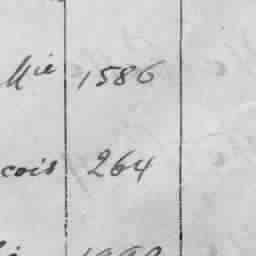 Mie 1586
cois 264